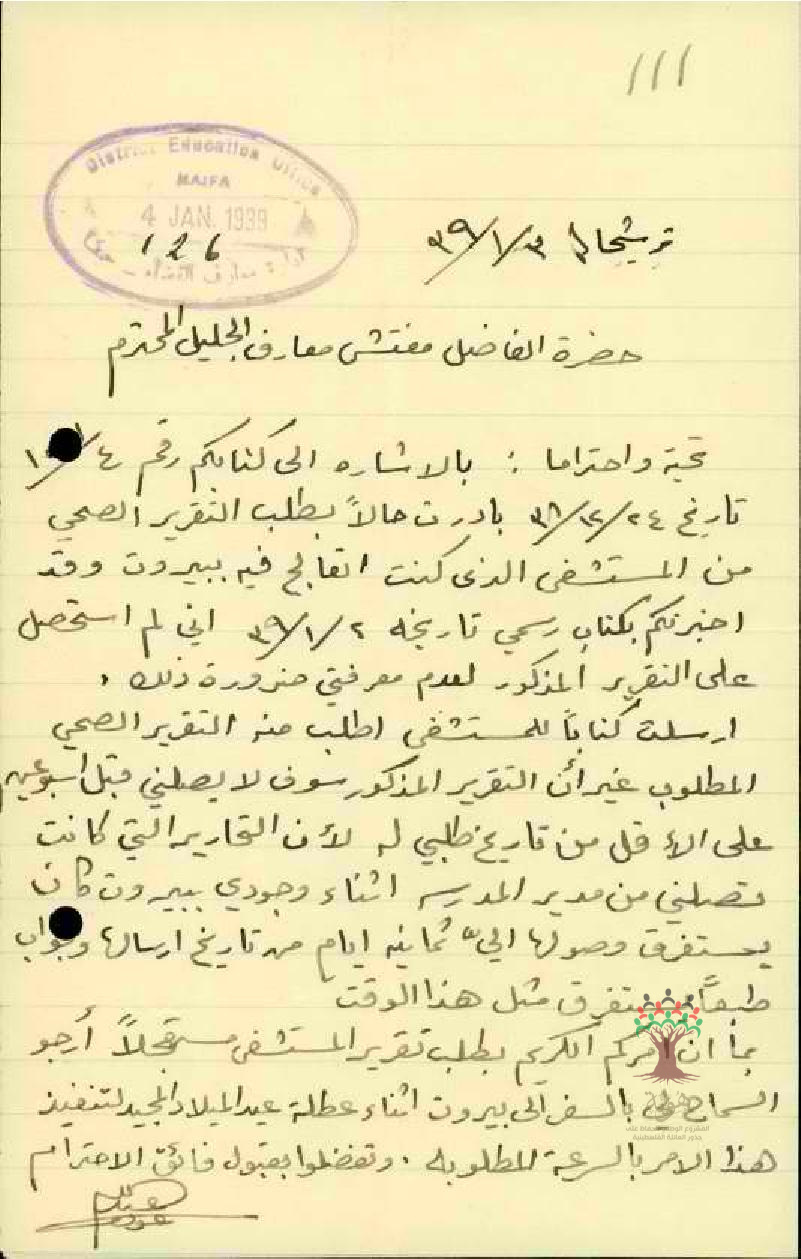 111
District Education Office
HAIFA
4 JAN 1939
126
ترشيحا في ٣٩/١/٣
حضرة الفاضل مفتش معارف الجليل المحترم
تحية واحتراما : بالاشاره الى كتابكم رقم
تاريخ ٣٨/١٢/٢٤ بادرت حالاً بطلب التقرير الصحي
من المستشفى الذى كنت اتعالج فيه ببيروت وقد
اخبرتكم بكتاب رسمي تاريخه ٣٩/١/٢ اني لم استحصل
على التقرير المذكور لعدم معرفتي ضرورة ذلك .
ارسلت كتاباً للمستشفى اطلب منه التقرير الصحي
المطلوب غير أن التقرير المذكور سوف لا يصلني قبل اسبوعين
على الاقل من تاريخ طلبي له لأن التحارير التي كانت
تصلني من مدير المدرسه اثناء وجودي ببيروت كان
يستغرق وصولها اليّ ثمانيه ايام من تاريخ ارسالها وجواب
طبعاً يستغرق مثل هذا الوقت
بما ان امركم الكريم بطلب تقرير المستشفى مستعجلاً أرجو
السماح لي بالسفر الى بيروت اثناء عطلة عيد الميلاد المجيد لتنفيذ
هذا الامر بالسرعة المطلوبه . وتفضلوا بقبول فائق الاحترام